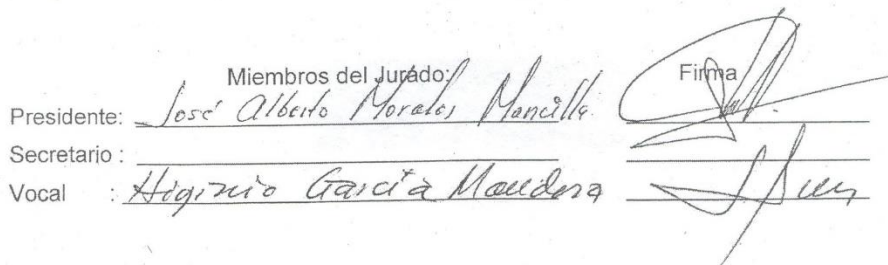 Miembros del Jurado: Firma
Presidente: José Alberto Morales Mancilla
Secretario :
Vocal : Higinio García Mendoza